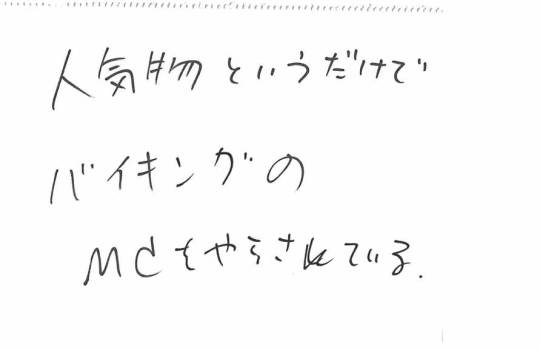 人気物というだけで
バイキングの
MCをやらされている.